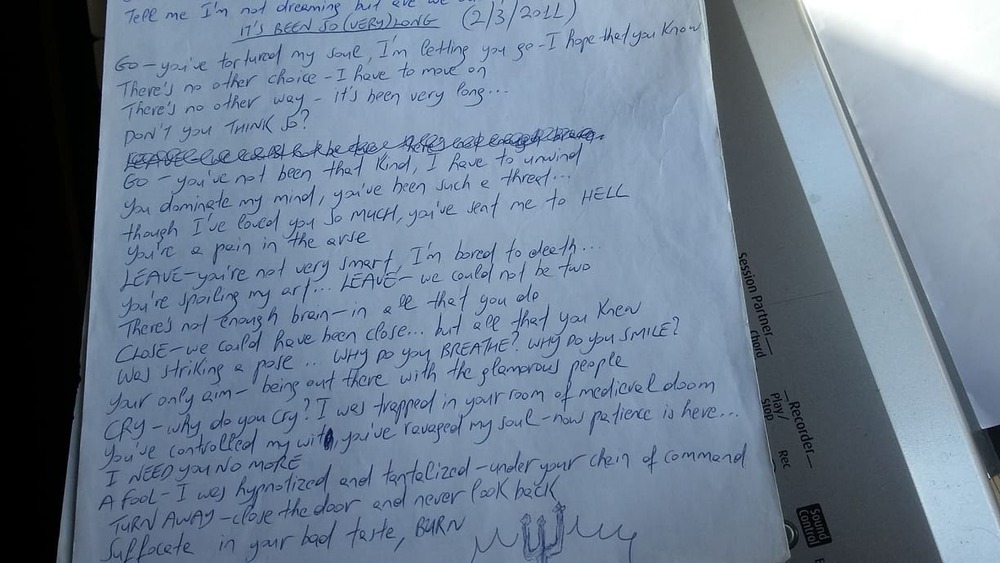 Tell me I'm not dreaming but are we
IT'S BEEN SO (VERY) LONG (2/3/2011)
GO - you've tortured my soul, I'm letting you go - I hope that you know
There's no other choice - I have to move on
There's no other way - it's been very long...
DON'T you THINK SO?
GO - you've not been that kind, I have to unwind
You dominate my mind, you've been such a threat...
though I've loved you so much, you've sent me to HELL
You're a pain in the arse
LEAVE - you're not very smart, I'm bored to death...
You're spoiling my art... LEAVE - we could not be two
There's not enough brain - in all that you do
CLOSE - we could have been close... but all that you knew
Was striking a pose... WHY DO YOU BREATHE? WHY DO YOU SMILE?
Your only aim - being out there with the glamorous people
CRY - why do you cry? I was trapped in your room of medieval doom
You've controlled my wit, you've ravaged my soul - now patience is here...
I NEED YOU NO MORE
A FOOL - I was hypnotized and tantalized - under your chain of command
TURN AWAY - close the door and never look back
Suffocate in your bad taste, BURN
Session Partner
Chord
Recorder
Play/
Stop
Rec
Sound
Control